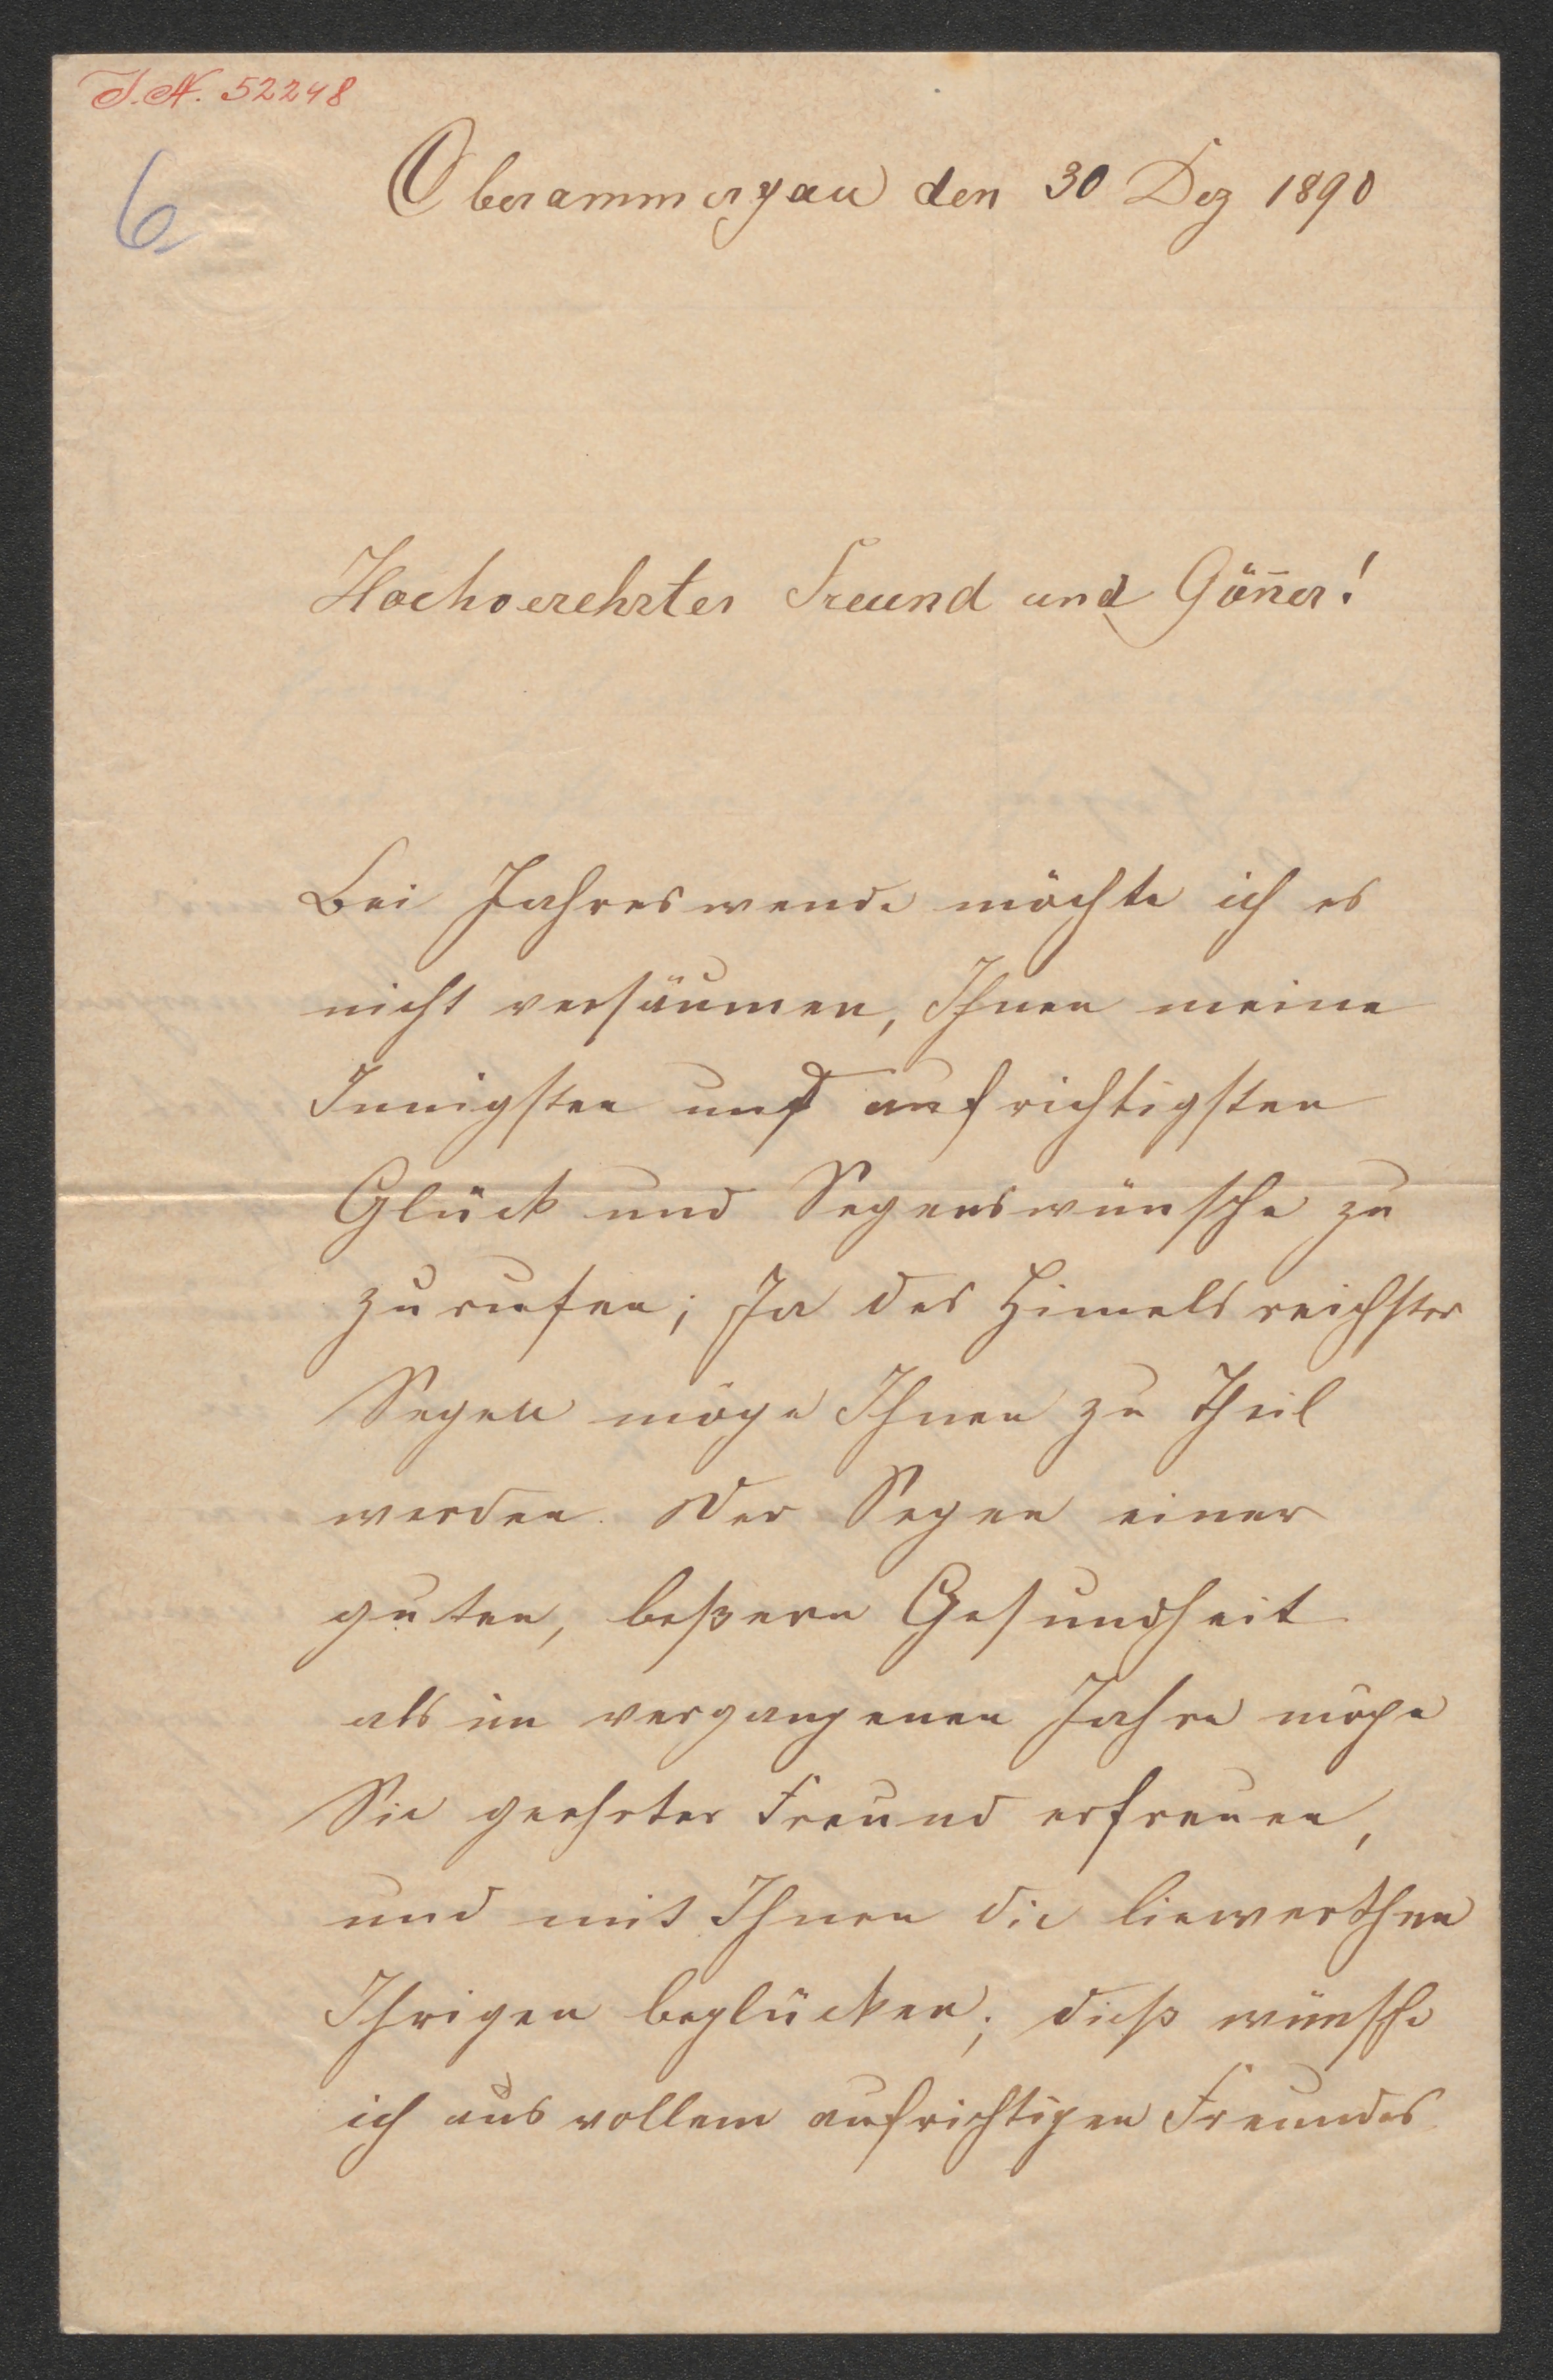 J.N. 52248
6
Oberammergau den 30 Dez 1890
Hochverehrter Freund und Goñer!
Bei Jahreswende möchte ich es
nicht versäumen, Ihnen meine
Innigsten und aufrichtigsten
Glück und Segenswünsche zu
zurufen; Ja des Himels reichster
Segen möge Ihnen zu Theil
werden. Der Segen einer
guten, beßern Gesundheit
als im vergangenen Jahre möge
Sie geehrter Freund erfreuen,
und mit Ihnen die liewerthen
Ihrigen beglücken; dieß wünsche
ich aus vollem aufrichtigen Freundes